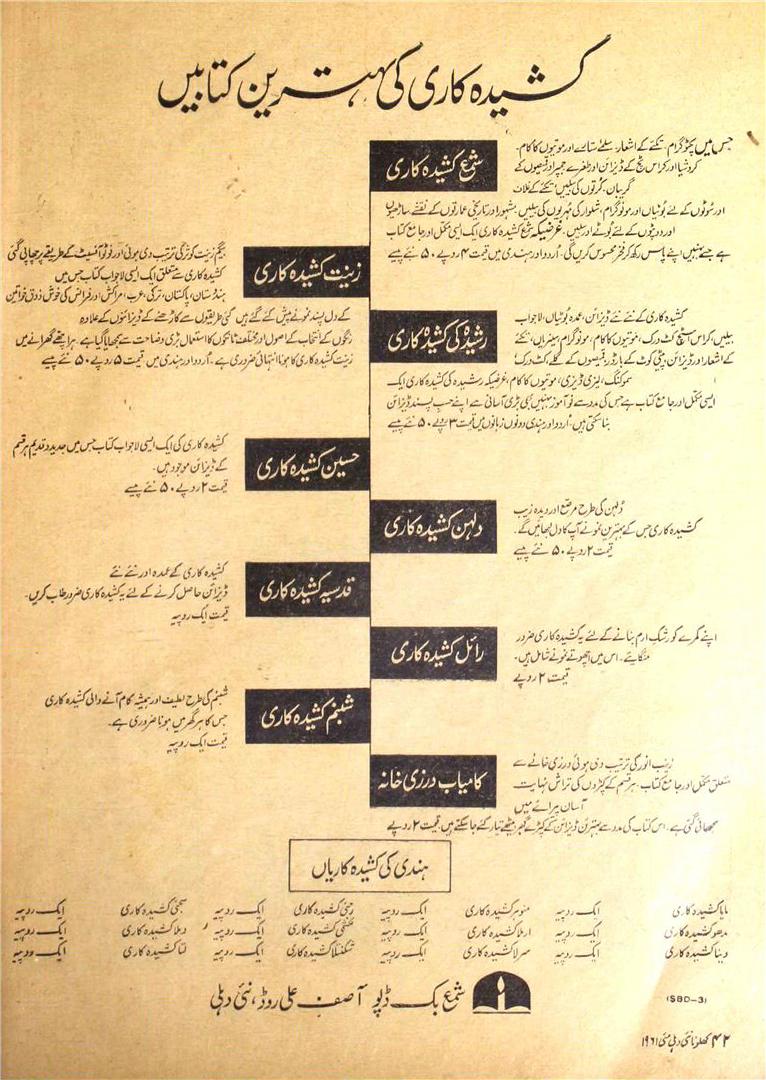 کشیدہ کاری کی بہترین کتابیں
شمع کشیدہ کاری
جس میں پکٹوگرام۔ تکئے کے اشعار۔ سلمے ستارے اور موتیوں کا کام۔
کروشیا اور کراس سٹچ کے ڈیزائن اور طغرے جمپر اور قمیصوں کے
گریبان۔ کُرتوں کی بیلیں۔ تکئے کے غلاف
اور سُوٹوں کے لئے بُوٹیاں اور مونوگرام، شلوار کی مُہریوں کی بیلیں۔ مشہور اور تاریخی عمارتوں کے نقشے۔ ساڑھیوں
اور دوپٹوں کے لئے بُوٹے اور بیلیں۔ غرضیکہ شمع کشیدہ کاری ایک ایسی مکمل اور جامع کتاب
ہے جسے بہنیں اپنے پاس رکھ کر فخر محسوس کریں گی۔ اُردو اور ہندی میں قیمت ۴ روپے ۵۰ نئے پیسے
زینت کشیدہ کاری
بیگم زینت کوثر کی ترتیب دی ہوئی اور فوٹو آفسیٹ کے طریقے پر چھاپی گئی
کشیدہ کاری سے متعلق ایک ایسی لاجواب کتاب جس میں
ہندوستان، پاکستان، ترکی، عرب، مراکش اور فرانس کی خوش ذوق خواتین
کے دل پسند نمونے پیش کئے گئے ہیں گئی طریقوں سے کاڑھنے کے ڈیزائنوں کے علاوہ
رنگوں کے انتخاب کے اصول اور مختلف ٹانکوں کا استعمال بڑی وضاحت سے سمجھایا گیا ہے۔ ہر اچھے گھرانے میں
زینت کشیدہ کاری کا ہونا انتہائی ضروری ہے۔ اُردو اور ہندی میں۔ قیمت ۵ روپے ۵۰ نئے پیسے
رشیدہ کی کشیدہ کاری
کشیدہ کاری کے نئے نئے ڈیزائن، عمدہ بوٹیاں، لاجواب
بیلیں، کراس اسٹچ کٹ ورک، موتیوں کا کام، مونوگرام، سینریاں، تکئے
کے اشعار اور ڈیزائن، پیٹی کوٹ کے بارڈر، قمیصوں کے گلے، کٹ ورک
سموکنگ، لیزی ڈیزی، موتیوں کا کام، غرضیکہ رشیدہ کی کشیدہ کاری ایک
ایسی مکمل اور جامع کتاب ہے جس کی مدد سے نو آموز بہنیں بھی بڑی آسانی سے اپنے حسبِ پسند ڈیزائن
بنا سکتی ہیں۔ اُردو اور ہندی دونوں زبانوں میں قیمت ۳ روپے ۵۰ نئے پیسے
حسین کشیدہ کاری
کشیدہ کاری کی ایک ایسی لاجواب کتاب جس میں جدید و قدیم ہر قسم
کے ڈیزائن موجود ہیں۔
قیمت ۲ روپے ۵۰ نئے پیسے
دلہن کشیدہ کاری
دُلہن کی طرح مرصّع اور دیدہ زیب
کشیدہ کاری جس کے بہترین نمونے آپ کا دل لبھائیں گے۔
قیمت ۲ روپے ۵۰ نئے پیسے
قدسیہ کشیدہ کاری
کشیدہ کاری کے عمدہ اور نئے نئے
ڈیزائن حاصل کرنے کے لئے یہ کشیدہ کاری ضرور طلب کریں۔
قیمت ایک روپیہ
رائل کشیدہ کاری
اپنے کمرے کو رشکِ ارم بنانے کے لئے یہ کشیدہ کاری ضرور
منگائیے۔ اس میں اچھوتے نمونے شامل ہیں۔
قیمت ۲ روپے
شبنم کشیدہ کاری
شبنم کی طرح لطیف اور ہمیشہ کام آنے والی کشیدہ کاری
جس کا ہر گھر میں ہونا ضروری ہے۔
قیمت ایک روپیہ
کامیاب درزی خانہ
زیب انور کی ترتیب دی ہوئی درزی خانے سے
متعلق مکمل اور جامع کتاب۔ ہر قسم کے کپڑوں کی تراش نہایت
آسان پیرائے میں
سمجھائی گئی ہے۔ اس کتاب کی مدد سے بہترین ڈیزائن کے کپڑے گھر بیٹھے تیار کئے جا سکتے ہیں۔ قیمت ۲ روپے
ہندی کی کشیدہ کاریاں
مایا کشیدہ کاری ایک روپیہ منوہر کشیدہ کاری ایک روپیہ رجنی کشیدہ کاری ایک روپیہ سجنی کشیدہ کاری ایک روپیہ
مدھو کشیدہ کاری ایک روپیہ ارملا کشیدہ کاری ایک روپیہ کشیدہ کاری ایک روپیہ وملا کشیدہ کاری ایک روپیہ
وینا کشیدہ کاری ایک روپیہ سرلا کشیدہ کاری ایک روپیہ شکنتلا کشیدہ کاری ایک روپیہ لتا کشیدہ کاری ایک روپیہ
شمع بک ڈپو آصف علی روڈ، نئی دہلی
(SBD-3)
۴۲ کھلونا نئی دہلی مئی ۱۹۶۱